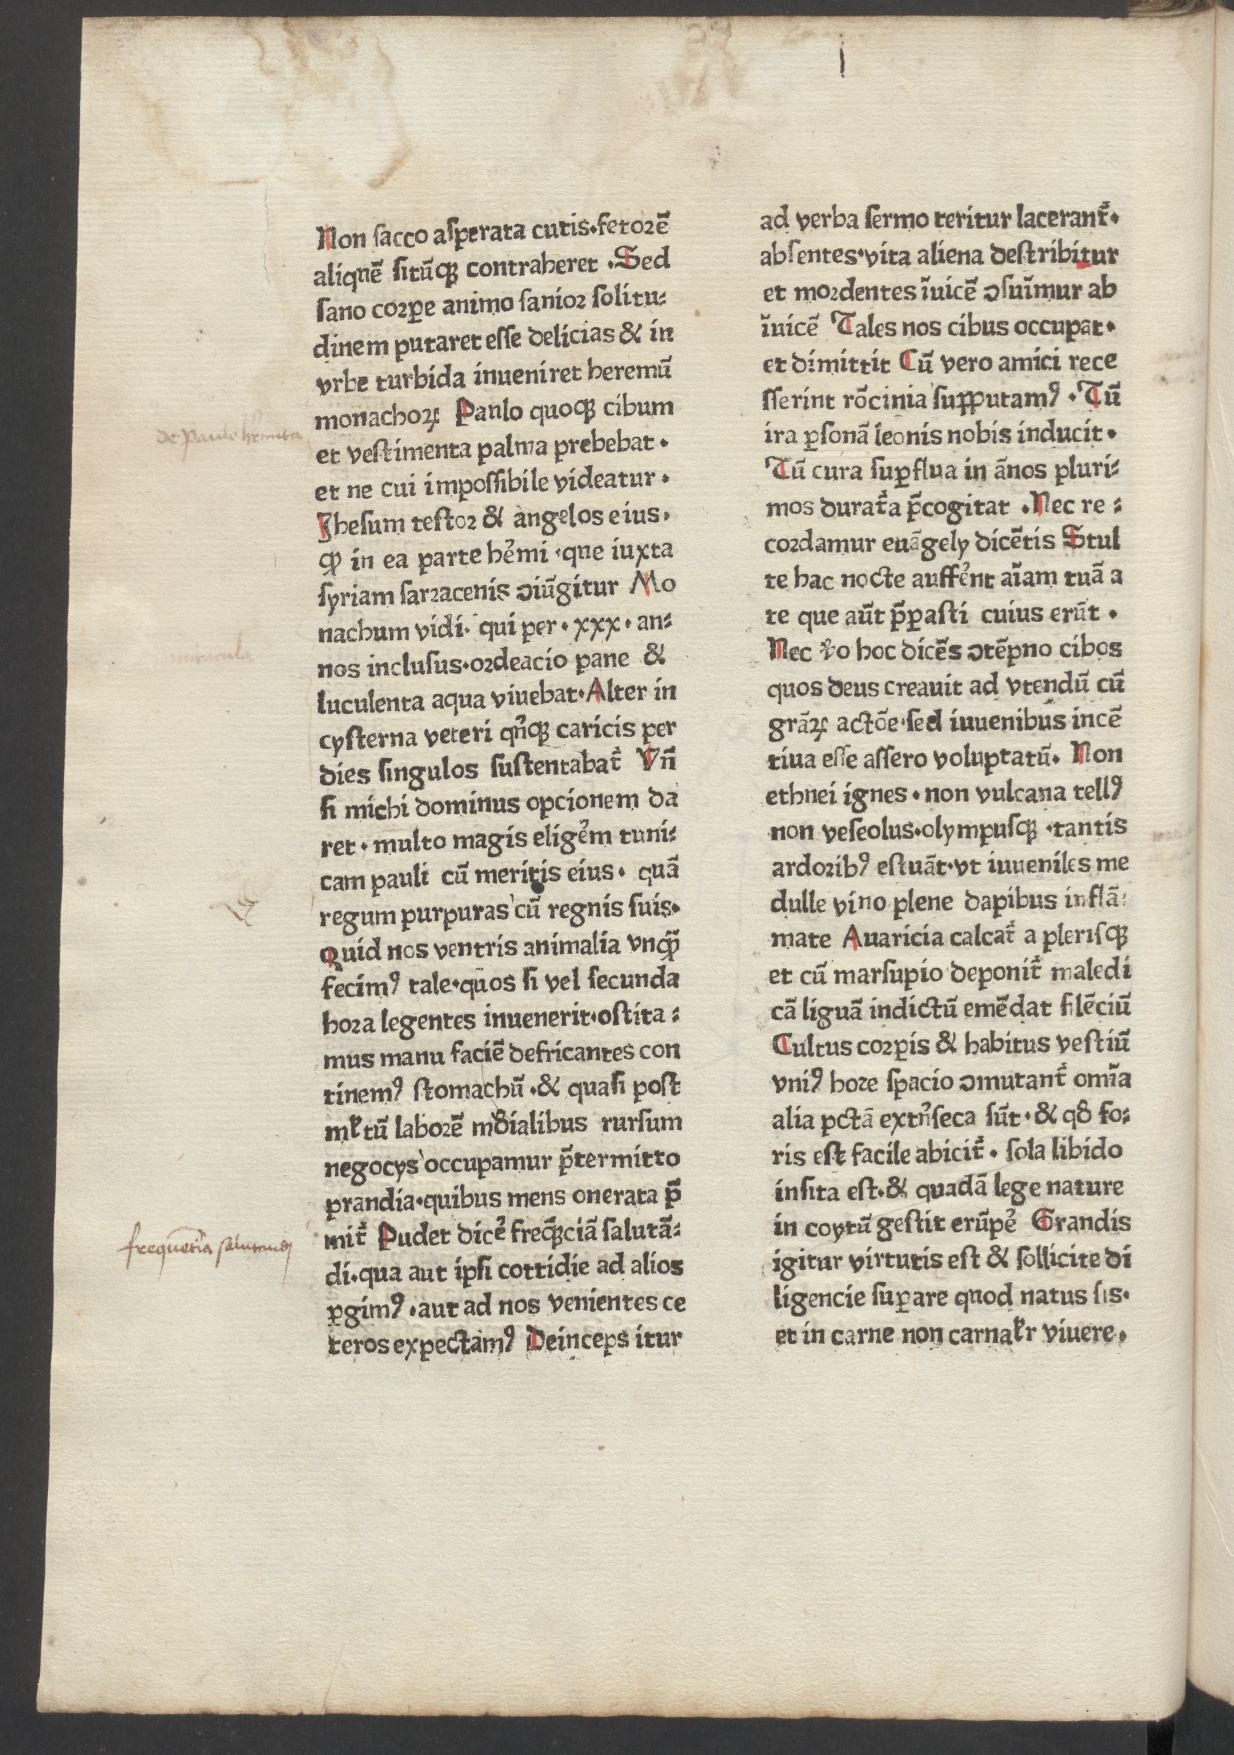 Non sacco asperata cutis·fetorē
aliquē sitūqꝫ contraheret ·Sed
sano corꝑe animo sanior solitu⸗
dinem putaret esse delicias & in
vrbe turbida inueniret heremū
monachoꝝ Paulo quoqꝫ cibum
et vestimenta palma prebebat·
et ne cui impossibile videatur·
Jhesum testor & angelos eius·
ꝙ in ea parte he᷒mi ·que iuxta
syriam sarracenis ↄiūgitur Mo
nachum vidi· qui per·xxx·an⸗
nos inclusus·ordeacio pane &
luculenta aqua viuebat·Alter in
cysterna veteri qn̄qꝫ caricis per
dies singulos sustentabat᷒ Vn̄
si michi dominus opcionem da
ret· multo magis elige᷒m tuni⸗
cam pauli cū meritis eius· quā
regum purpuras cū regnis suis·
Quid nos ventris animalia vnqꝫ̄
fecimꝰ tale·quos si vel secunda
hora legentes inuenerit·ostita⸗
mus manu faciē defricantes con
tinemꝰ stomachū·& quasi post
mꝉtū laborē mūdialibus rursum
negocys occupamur p̄termitto
prandia·quibus mens onerata p̄
mit᷒ Pudet dice᷒ freqꝫ̄ciā salutā⸗
di·qua aut ipsi cottidie ad alios
ꝑgimꝰ·aut ad nos venientes ce
teros expectamꝰ Deinceps itur
de Paulo he᷒mita
miracula
frequētia salutandi
ad verba sermo teritur lacerant᷒·
absentes·vita aliena destribitur
et mordentes īuicē ↄsuīmur ab
īuicē Tales nos cibus occupat·
et dimittit Cū vero amici rece
sserint rōcinia supputamꝰ·Tū
ira ꝑsonā leonis nobis inducit·
Tū cura suꝑflua in ānos pluri⸗
mos durat᷒a p̄cogitat ·Nec re⸗
cordamur euāgely dicētis Stul
te hac nocte auffe᷒nt aīam tuā a
te que aūt p̄ꝑasti cuius erūt·
Nec v᷒o hoc dicēs ↄtēpno cibos
quos deus creauit ad vtendū cū
grāꝝ actōe·sed iuuenibus incē
tiua esse assero voluptatū· Non
ethnei ignes·non vulcana tellꝰ
non veseolus·olympusqꝫ·tantis
ardoribꝰ estuāt·vt iuueniles me
dulle vino plene dapibus inflā⸗
mate Auaricia calcat᷒ a plerisqꝫ
et cū marsupio deponit᷒ maledi
cā liguā indictū emēdat silēciū
Cultus corꝑis & habitus vestiū
vniꝰ hore spacio ↄmutant᷒ omīa
alia pctā extn᷒seca sūt·& qđ fo⸗
ris est facile abicit᷒· sola libido
insita est·& quadā lege nature
in coytū gestit erūpe᷒ Grandis
igitur virtutis est & sollicite di
ligencie suꝑare quod natus sis·
et in carne non carnaꝉr viuere·